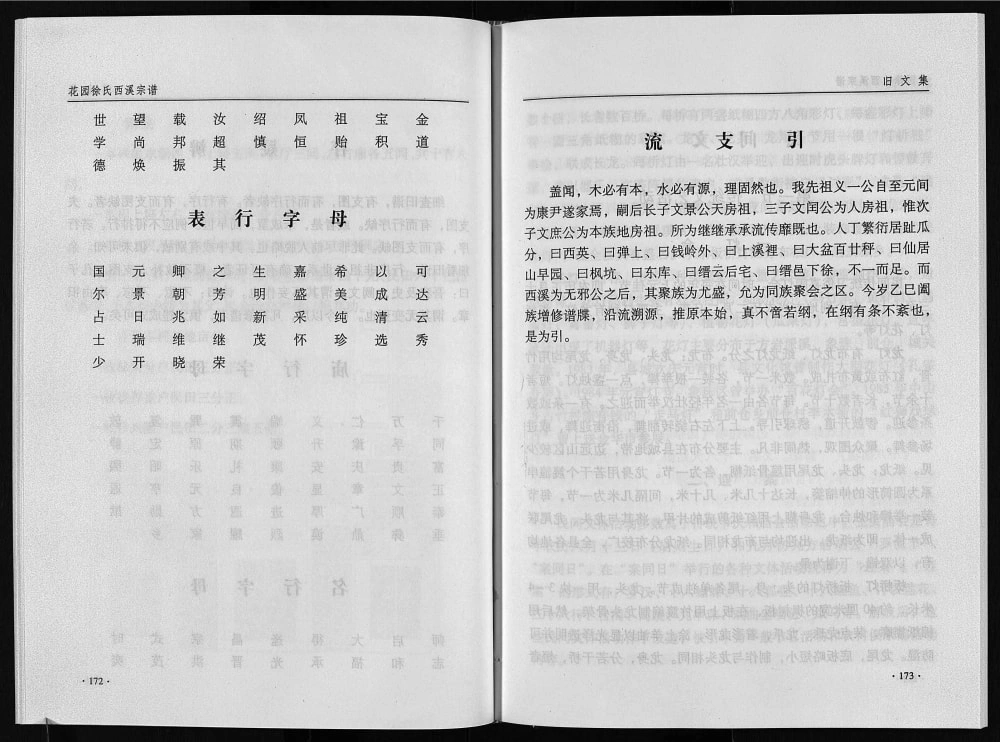 花园徐氏西溪宗谱
世 望 载 汝 绍 凤 祖 宝 金
学 尚 邦 超 慎 恒 贻 积 道
德 焕 振 其
表 行 字 母
国 元 卿 之 生 嘉 希 以 可
尔 景 朝 芳 明 盛 美 成 达
占 日 兆 如 新 采 纯 清 云
士 瑞 维 继 茂 怀 珍 选 秀
少 开 晓 荣
·172·
旧 文 集
流 支 引
盖闻，木必有本，水必有源，理固然也。我先祖义一公自至元间
为康尹遂家焉，嗣后长子文景公天房祖，三子文闰公为人房祖，惟次
子文庶公为本族地房祖。所为继继承承流传靡既也。人丁繁衍居趾瓜
分，曰西英、曰弹上、曰钱岭外、曰上溪裡、曰大盆百廿秤、曰仙居
山早园、曰枫坑、曰东库、曰缙云后宅、曰缙邑下徐，不一而足。而
西溪为无邪公之后，其聚族为尤盛，允为同族聚会之区。今岁乙巳阖
族增修谱牒，沿流溯源，推原本始，真不啻若纲，在纲有条不紊也，
是为引。
·173·